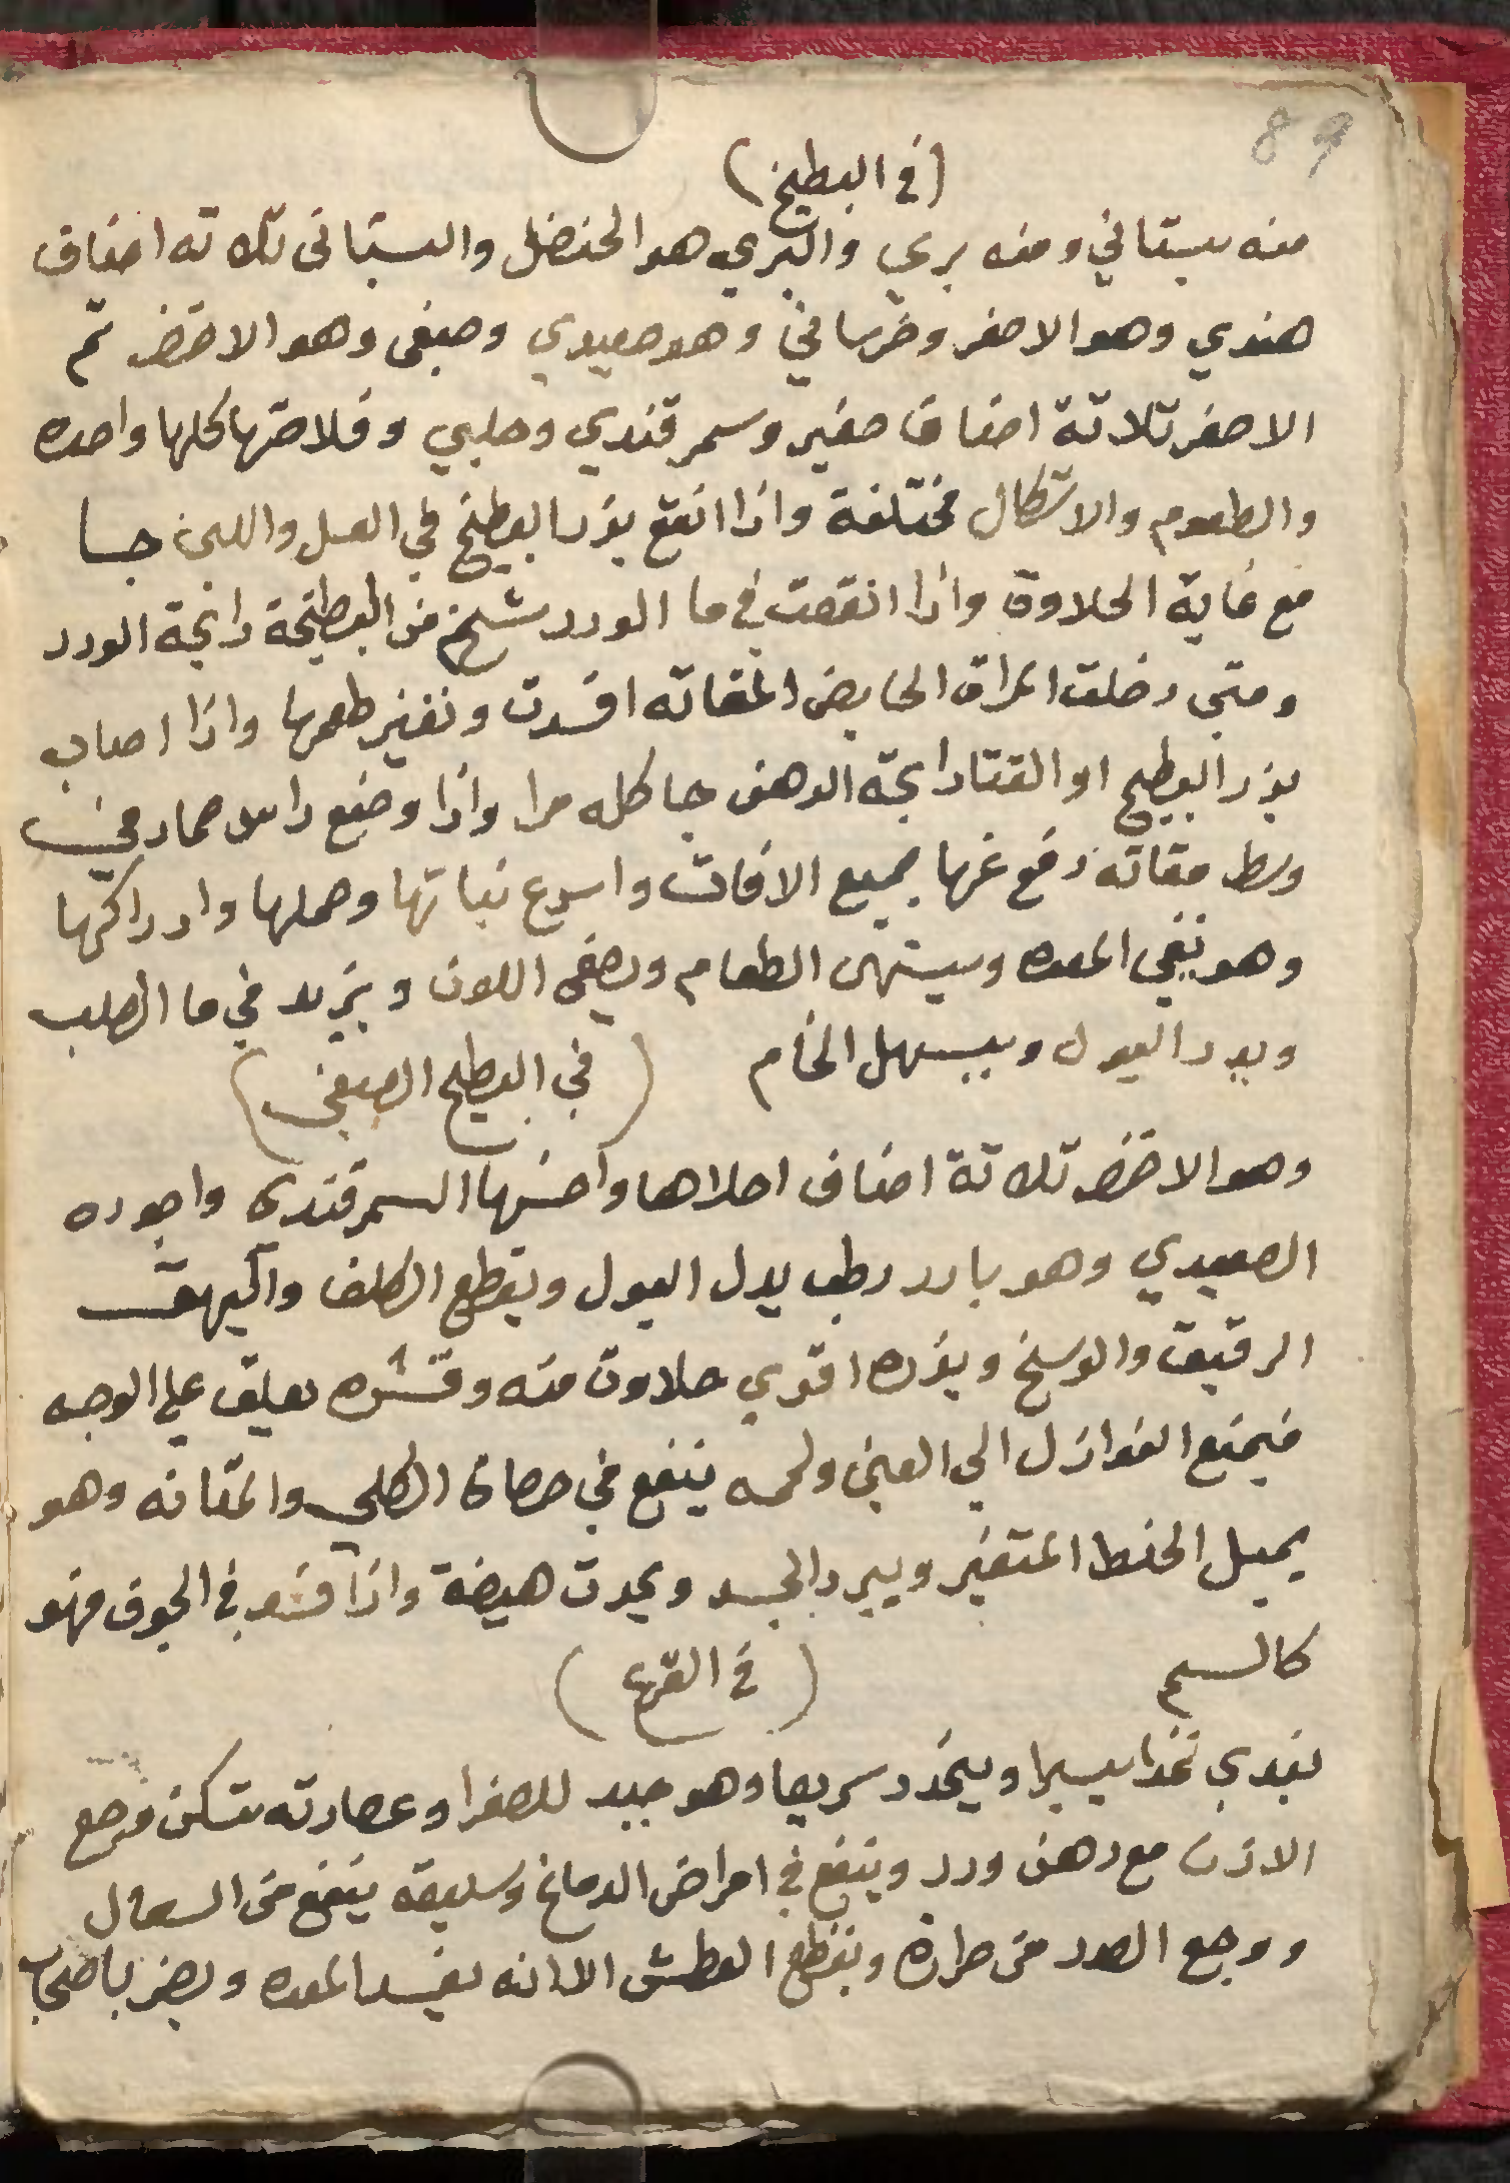 89
(في البطيخ)
منه بستاني ومنه بري والبري هو الحنضل والبستانى تلاته اصناف
هندي وهو الاصفر وخرساني وهو صعيدي وصيفى وهو الاخضر تم
الاصفر تلاتة اصناف صغير وسمرقندي وحلبي وفلاحتها كلها واحده
والطعوم والاشكال مختلفة واذا انقع بزر البطيخ في العسل واللبن جا
مع غاية الحلاوة واذا انقعت في ما الورد شم من البطيخة رايحة الورد
ومتى دخلت المراة الحايض المقاته افسدت وتغير طعمها واذا اصاب
بزر البطيخ او القتا رايحة الدهن جا كله مرا واذا وضع راس حمار في
وسط مقاته دفع عنها جميع الافات واسرع نباتها وحملها وادراكها
وهو ينقي المعده ويشهى الطعام ويصفى اللون ويزيد في ما الصلب
ويدر البول ويسهل الخام (في البطيخ الصيفي)
وهو الاخضر تلاتة اصناف احلاها واحسنها السمرقندي واجوده
الصعيدي وهو بارد رطب يدل البول ويقطع الكلف والبهق
الرقيق والوسخ وبزره اقوي حلاوة منه وقشره يعلق على الوجه
فيمنع النوازل الي العين ولحمه ينفع في حصاة الكلى والمتانه وهو
يميل الخلط المتغير ويبرد الجسد ويحدت هيضة واذا فسد في الجوف فهو
كالسم (في القرع)
يغدي غدا يسيرا وينحدر سريعا وهو جيد للصفرا وعصارته تسكن وجع
الادن مع دهن ورد وينفع في امراض الدماغ وسليقه ينفع من السعال
ووجع الصدر من حرارة ويقطع العطش الا انه يفسد المعده ويضر باصحاب